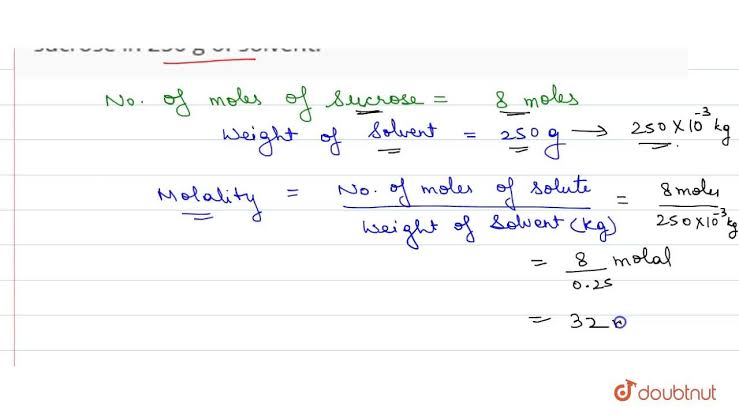 sucrose in 250 g of solvent.
No. of moles of Sucrose = 8 moles
Weight of Solvent = 250 g → 250 × 10⁻³ kg
Molality = No. of moles of solute / Weight of Solvent (kg) = 8 moles / 250 × 10⁻³ kg
= 8 / 0.25 molal
= 32
doubtnut